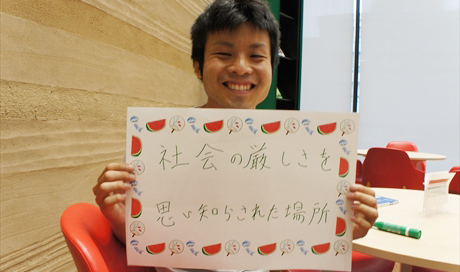 社会の厳しさを
思い知らされた場所